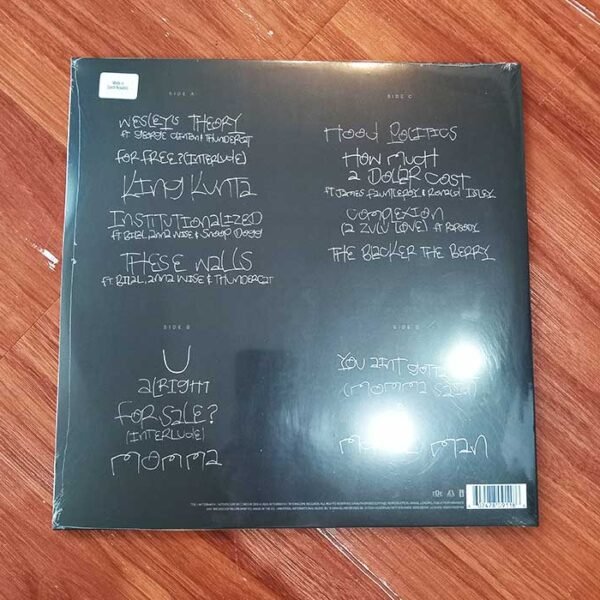 SIDE A
WESLEY'S THEORY
FT GEORGE CLINTON & THUNDERCAT
FOR FREE? (INTERLUDE)
KING KUNTA
INSTITUTIONALIZED
FT BILAL, ANNA WISE & SNOOP DOGG
THESE WALLS
FT BILAL, ANNA WISE & THUNDERCAT
SIDE B
U
ALRIGHT
FOR SALE?
(INTERLUDE)
MOMMA
SIDE C
HOOD POLITICS
HOW MUCH
A DOLLAR COST
FT JAMES FAUNTLEROY & RONALD ISLEY
COMPLEXION
(A ZULU LOVE) FT RAPSODY
THE BLACKER THE BERRY
SIDE D
YOU AINT GOTTA
(MOMMA SAID)
MAN